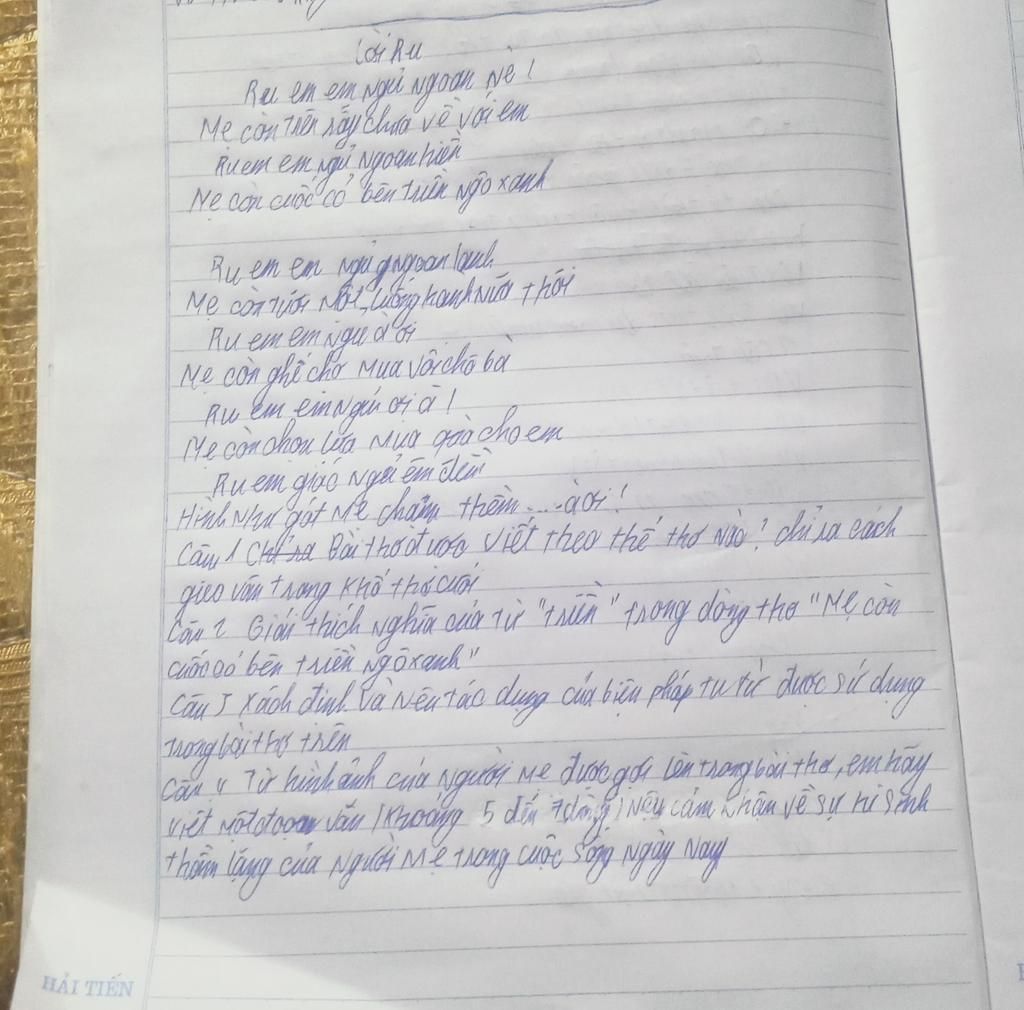 Lời Ru
Ru em em ngủ ngoan nè !
Mẹ còn trên rẫy chưa về với em
Ru em em ngủ ngoan hiền
Mẹ còn cuốc cỏ bên triền ngô xanh
Ru em em ngủ ngoan lành
Mẹ còn tưới nốt luống hanh nữa thôi
Ru em em ngủ à ơi
Mẹ còn ghé chợ mua vôi cho bà
Ru em em ngủ ơi à !
Mẹ còn chọn lựa mua quà cho em
Ru em giấc ngủ êm đềm
Hình như gót mẹ chạm thềm .... à ơi !
Câu 1 Chỉ ra Bài thơ được viết theo thể thơ nào ? chỉ ra cách
gieo vần trong khổ thơ cuối
Câu 2 Giải thích nghĩa của từ "triền" trong dòng thơ "Mẹ còn
cuốc cỏ bên triền ngô xanh"
Câu 3 Xách định và nêu tác dụng của biện pháp tu từ được sử dụng
trong bài thơ trên
Câu 4 Từ hình ảnh của người mẹ được gợi lên trong bài thơ, em hãy
viết một đoạn văn (khoảng 5 đến 7 dòng) nêu cảm nhận về sự hi sinh
thầm lặng của người mẹ trong cuộc sống ngày nay
HẢI TIẾN